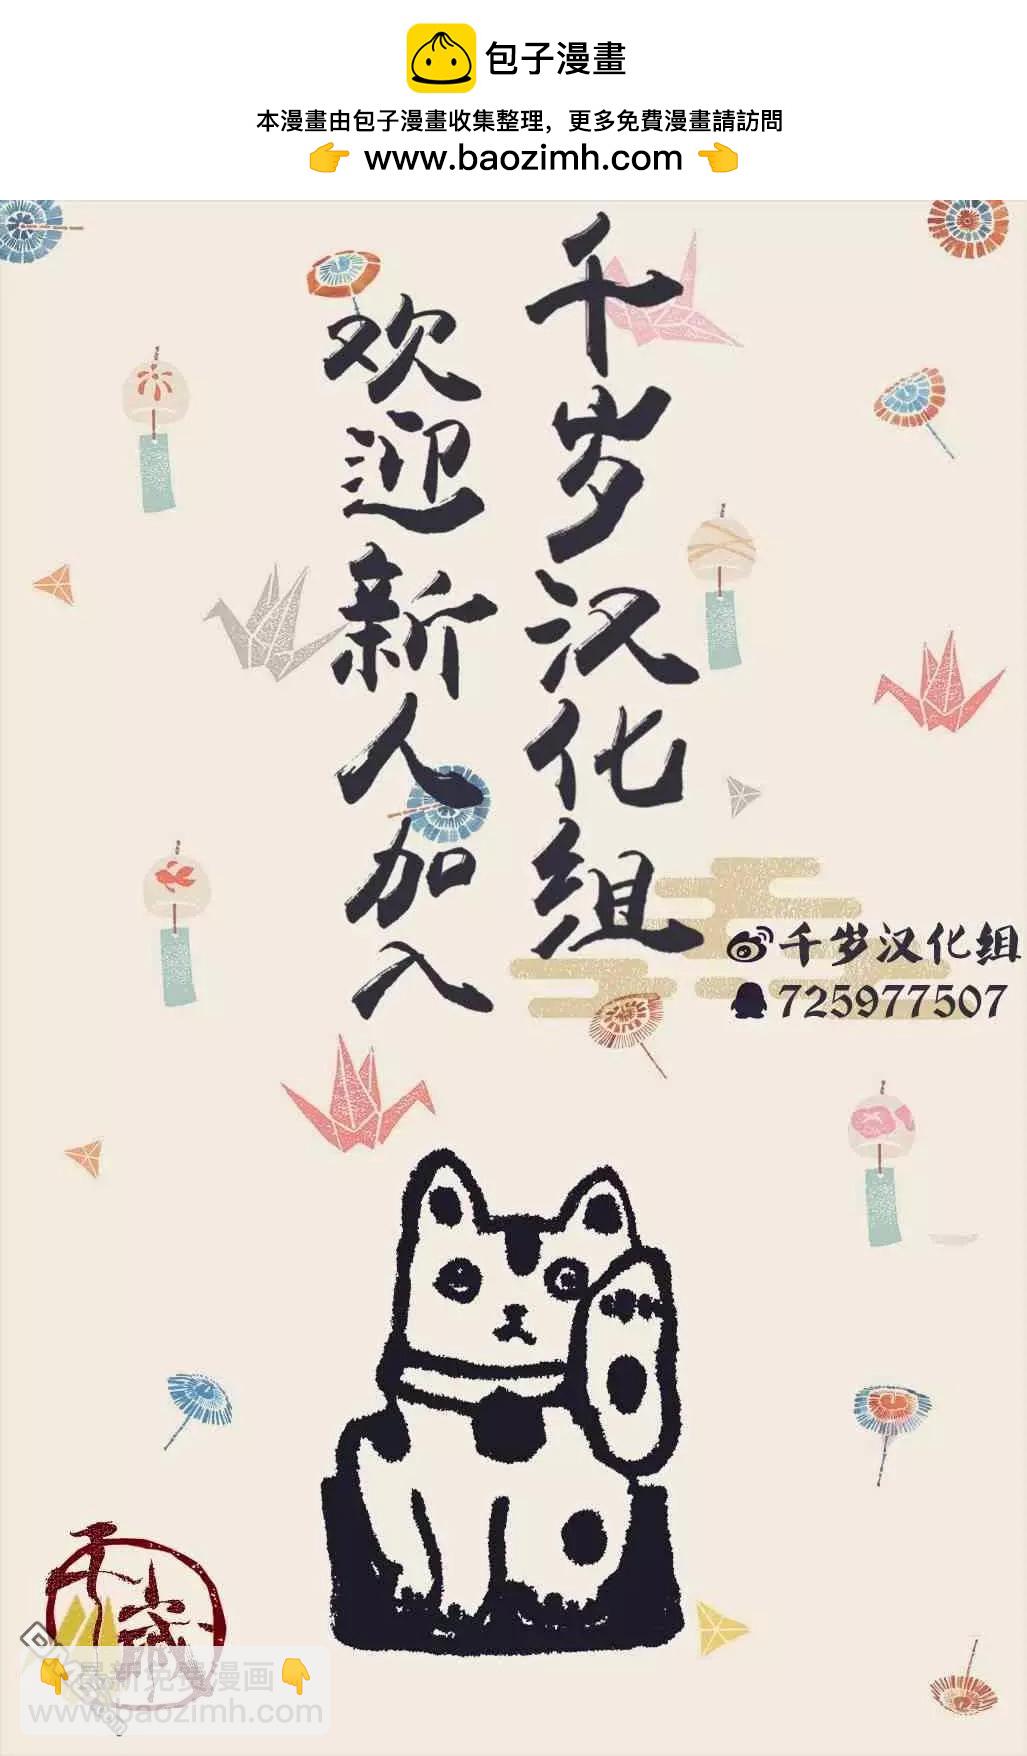 包子漫畫
本漫畫由包子漫畫收集整理，更多免費漫畫請訪問
👉 www.baozimh.com 👈
千岁汉化组
欢迎新人加入
千岁汉化组
725977507
千歳
👇最新免费漫画👇
www.baozimh.com